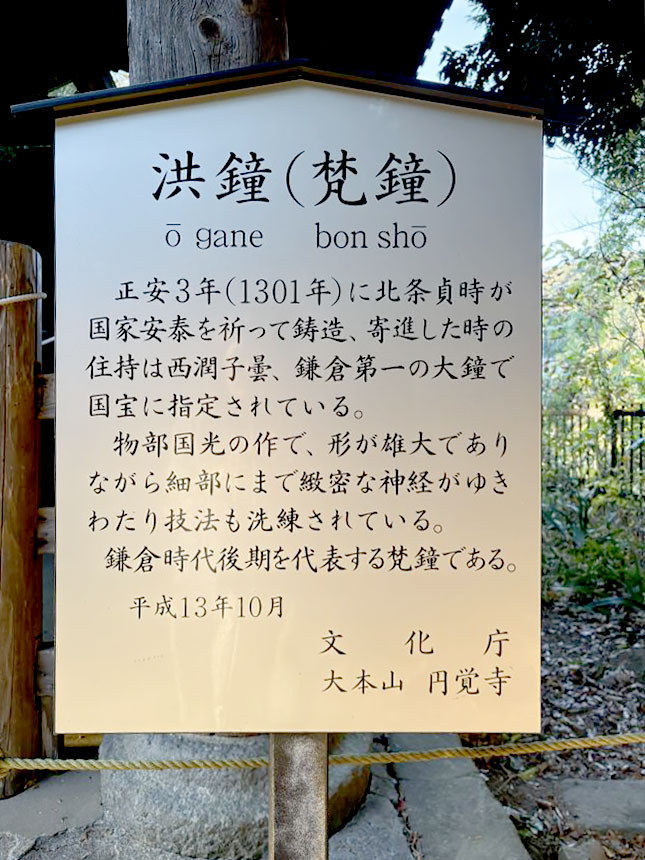 洪鐘(梵鐘)
ō gane bon shō
正安3年(1301年)に北条貞時が
国家安泰を祈って鋳造、寄進した時の
住持は西澗子曇、鎌倉第一の大鐘で
国宝に指定されている。
物部国光の作で、形が雄大であり
ながら細部にまで緻密な神経がゆき
わたり技法も洗練されている。
鎌倉時代後期を代表する梵鐘である。
平成13年10月
文化庁
大本山 円覚寺